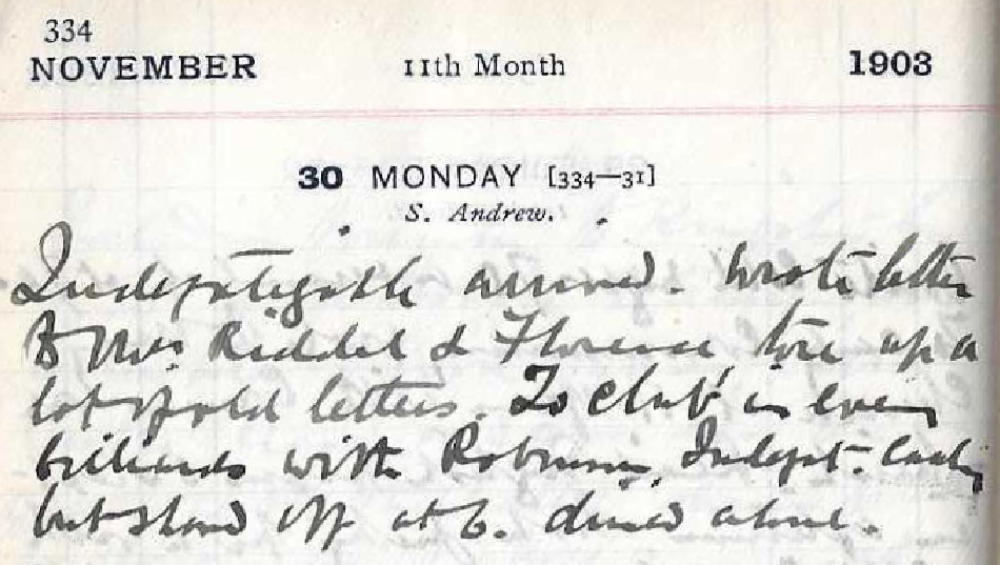 334
NOVEMBER 11th Month 1903
30 MONDAY [334—31]
S. Andrew.
Indefatigable arrived. Wrote letter
to Mrs Riddel & Florence tore up a
lot of old letters. To club in even
billiards with Robinson, Indefat.
but shoved off at 6. dined alone.